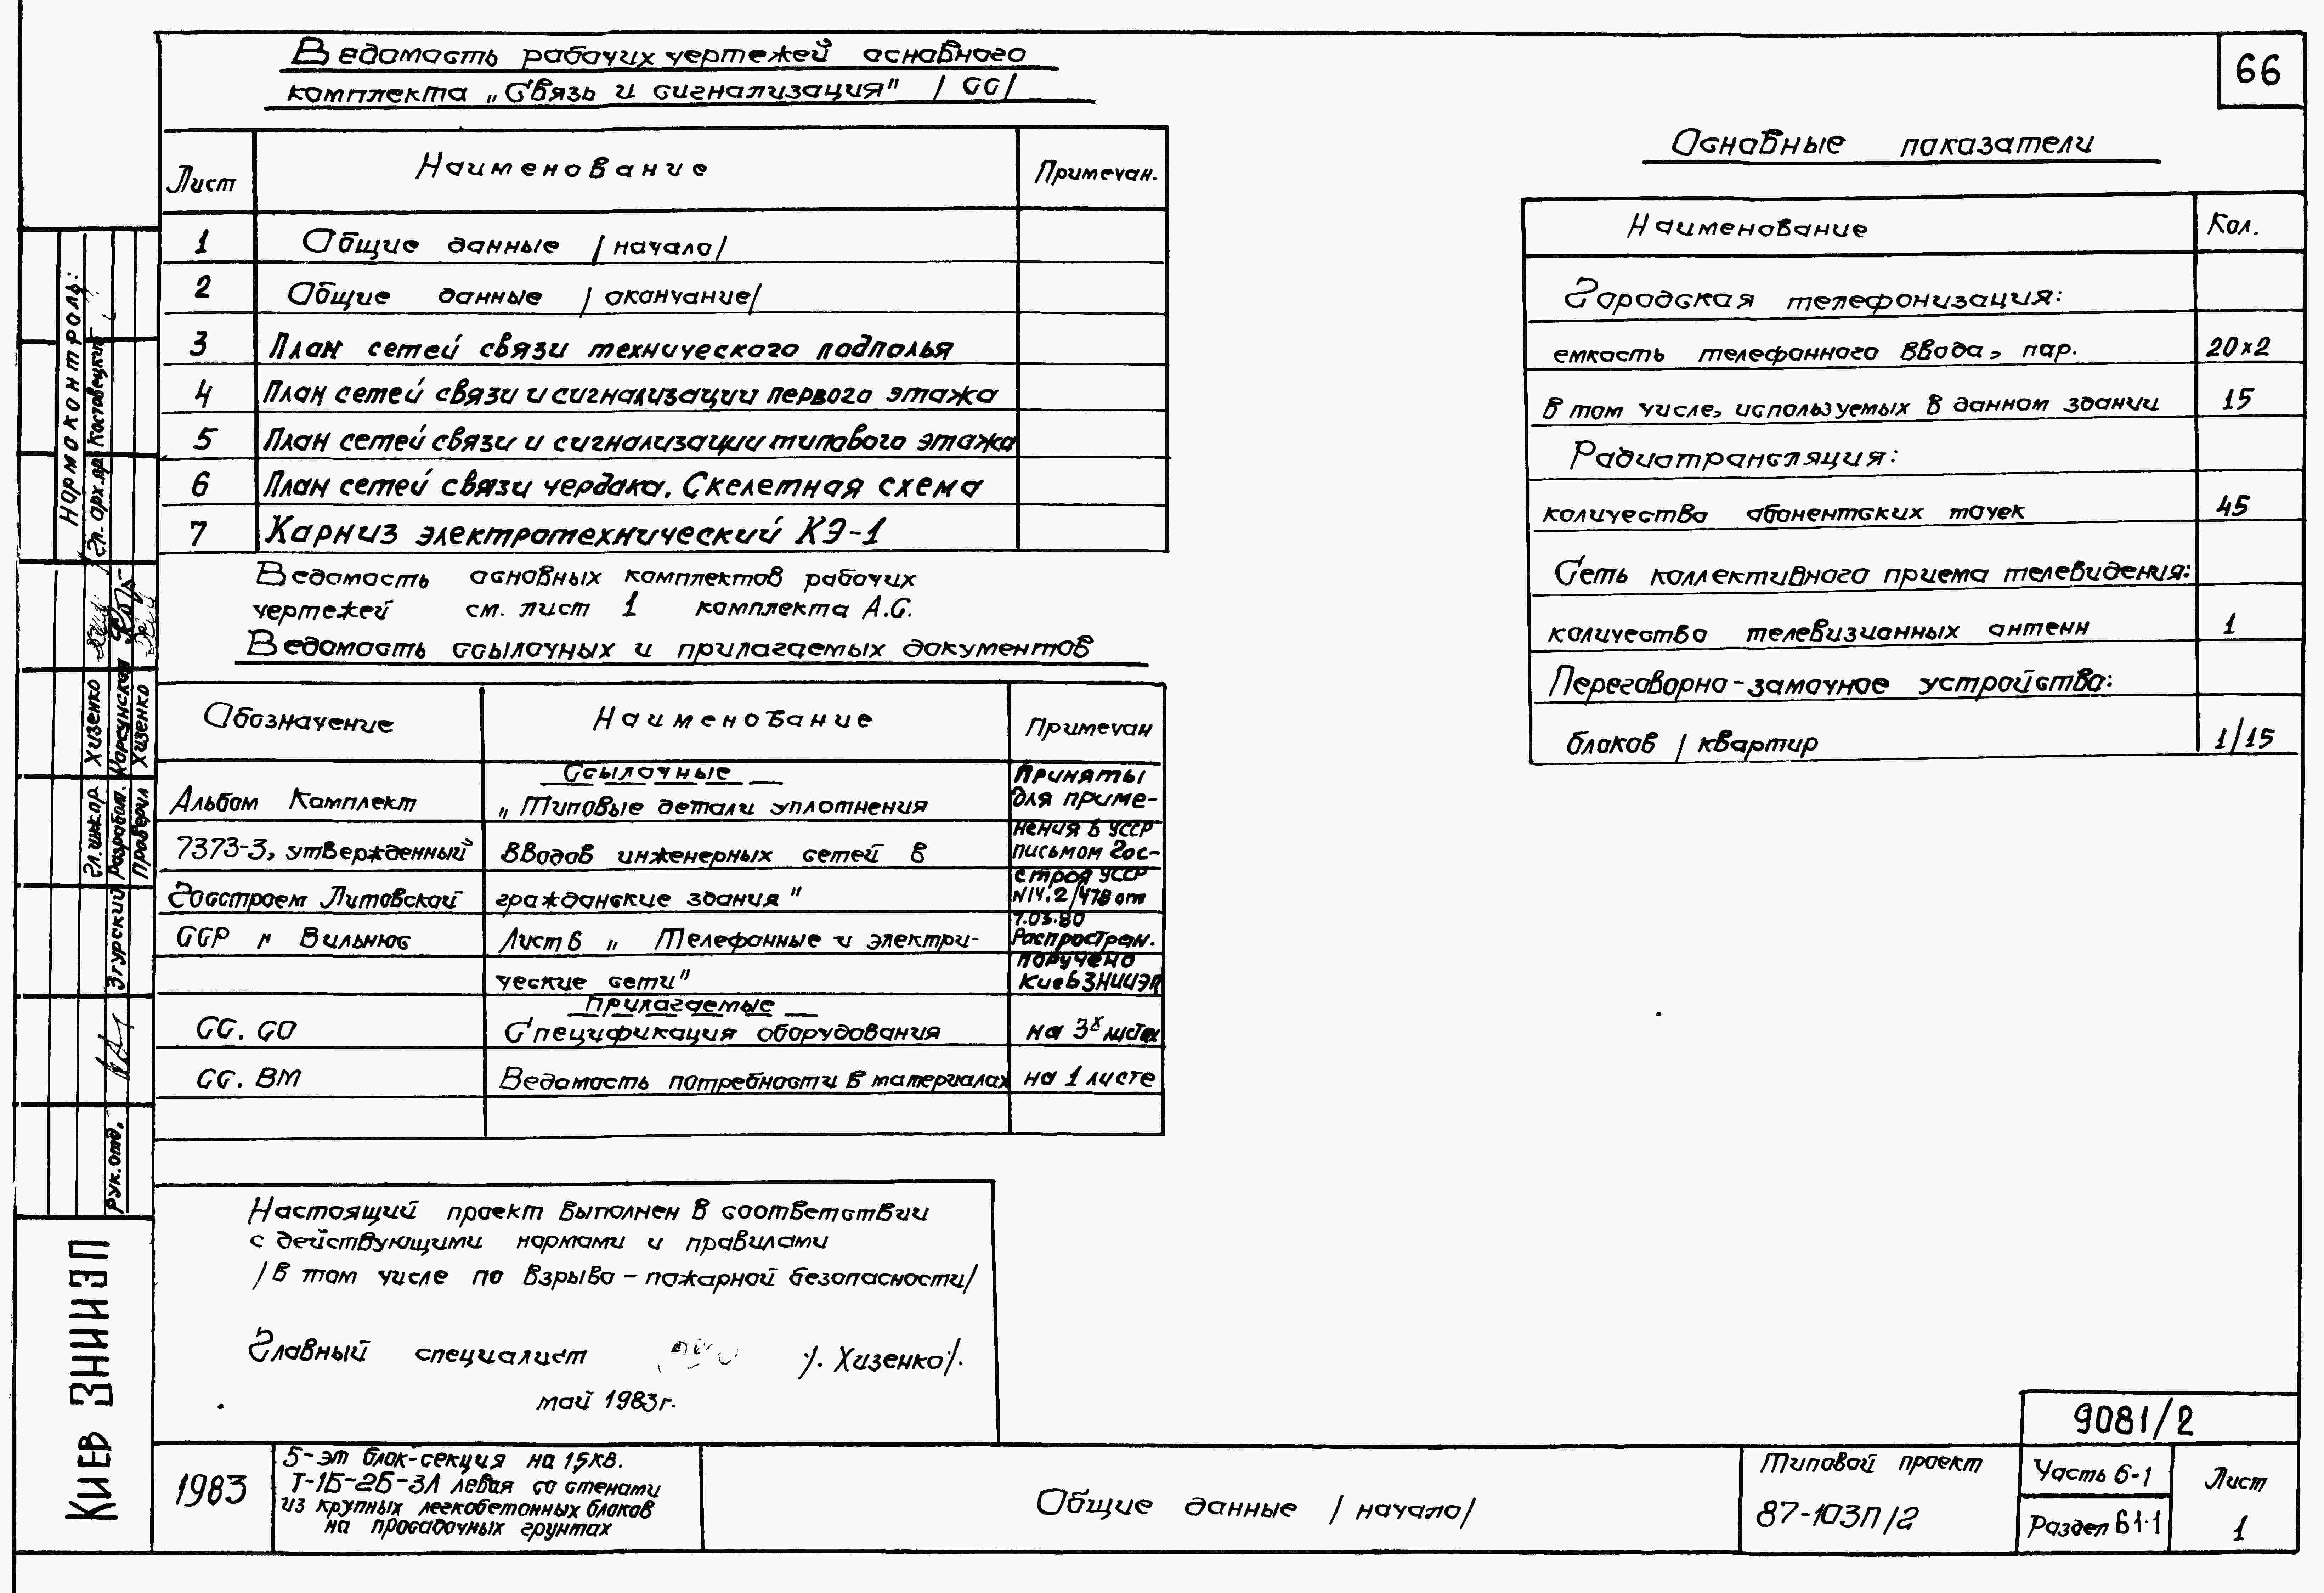 66
Ведомость рабочих чертежей основного
комплекта „Связь и сигнализация" /СС/
Лист Наименование Примечан.
1 Общие данные /начало/
2 Общие данные /окончание/
3 План сетей связи технического подполья
4 План сетей связи и сигнализации первого этажа
5 План сетей связи и сигнализации типового этажа
6 План сетей связи чердака. Скелетная схема
7 Карниз электротехнический КЭ-1
Ведомость основных комплектов рабочих
чертежей см. лист 1 комплекта А.С.
Ведомость ссылочных и прилагаемых документов
Обозначение Наименование Примечан
Ссылочные
Альбом Комплект „Типовые детали уплотнения
7373-3, утвержденный вводов инженерных сетей в
Госстроем Литовской гражданские здания"
ССР г. Вильнюс Лист 6 „Телефонные и электри-
ческие сети"
Приняты
для приме-
нения в УССР
письмом Гос-
строя УССР
N14.2/478 от
7.03.80
Распростран.
поручено
КиевЗНИИЭП
Прилагаемые
СС. СО Спецификация оборудования на 3х листах
СС. ВМ Ведомость потребности в материалах на 1 листе
Настоящий проект выполнен в соответствии
с действующими нормами и правилами
/в том числе по взрыво-пожарной безопасности/
Главный специалист /. Хизенко/.
май 1983г.
Основные показатели
Наименование Кол.
Городская телефонизация:
емкость телефонного ввода, пар. 20х2
в том числе, используемых в данном здании 15
Радиотрансляция:
количество абонентских точек 45
Сеть коллективного приема телевидения:
количество телевизионных антенн 1
Переговорно-замочное устройство:
блоков / квартир 1/15
Нормоконтроль:
Гл. арх. пр Костовецкий
Гл. инж. пр Хизенко
Разработ. Корсунская
Проверил Хизенко
Рук. отд. Згурский
Киев ЗНИИЭП
1983
5-эт блок-секция на 15кв.
Т-1Б-2Б-3Л левая со стенами
из крупных легкобетонных блоков
на просадочных грунтах
Общие данные /начало/
Типовой проект
87-103П/2
9081/2
Часть 6-1
Раздел 61-1
Лист
1